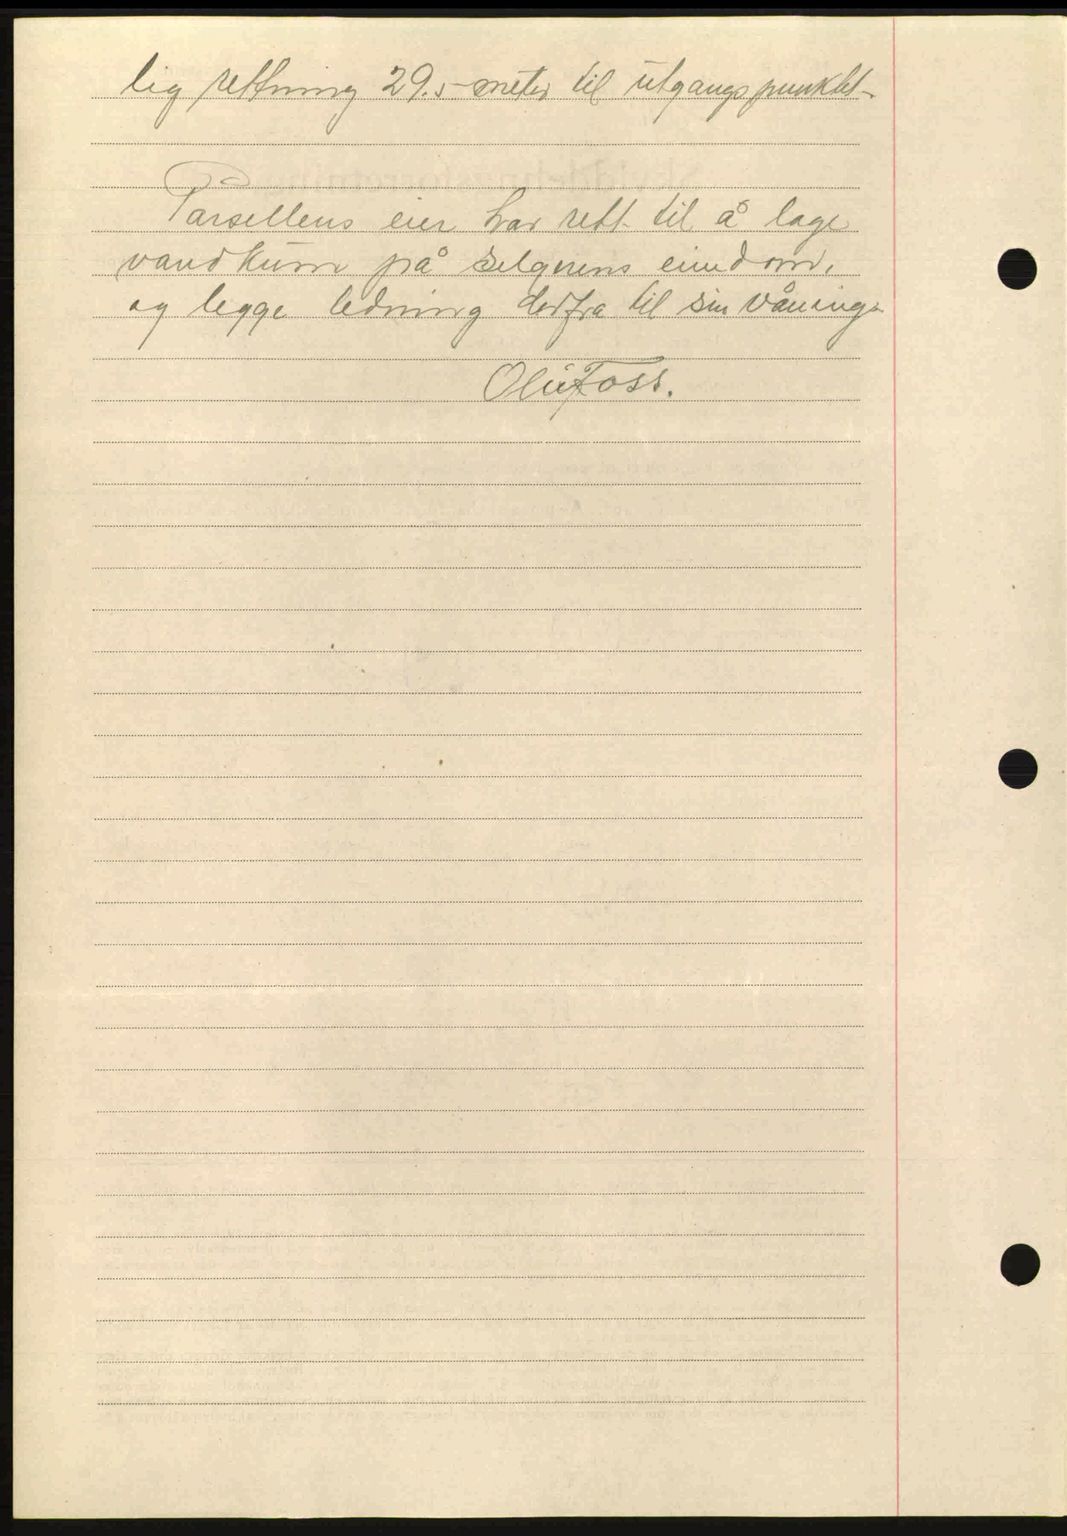 lig rettning 29.5 meter til utgangspunktet.
Parsellens eier har rett til å lage
vandkum på selgerens eiendom,
og legge ledning derfra til sin våning.
Oluf Foss.